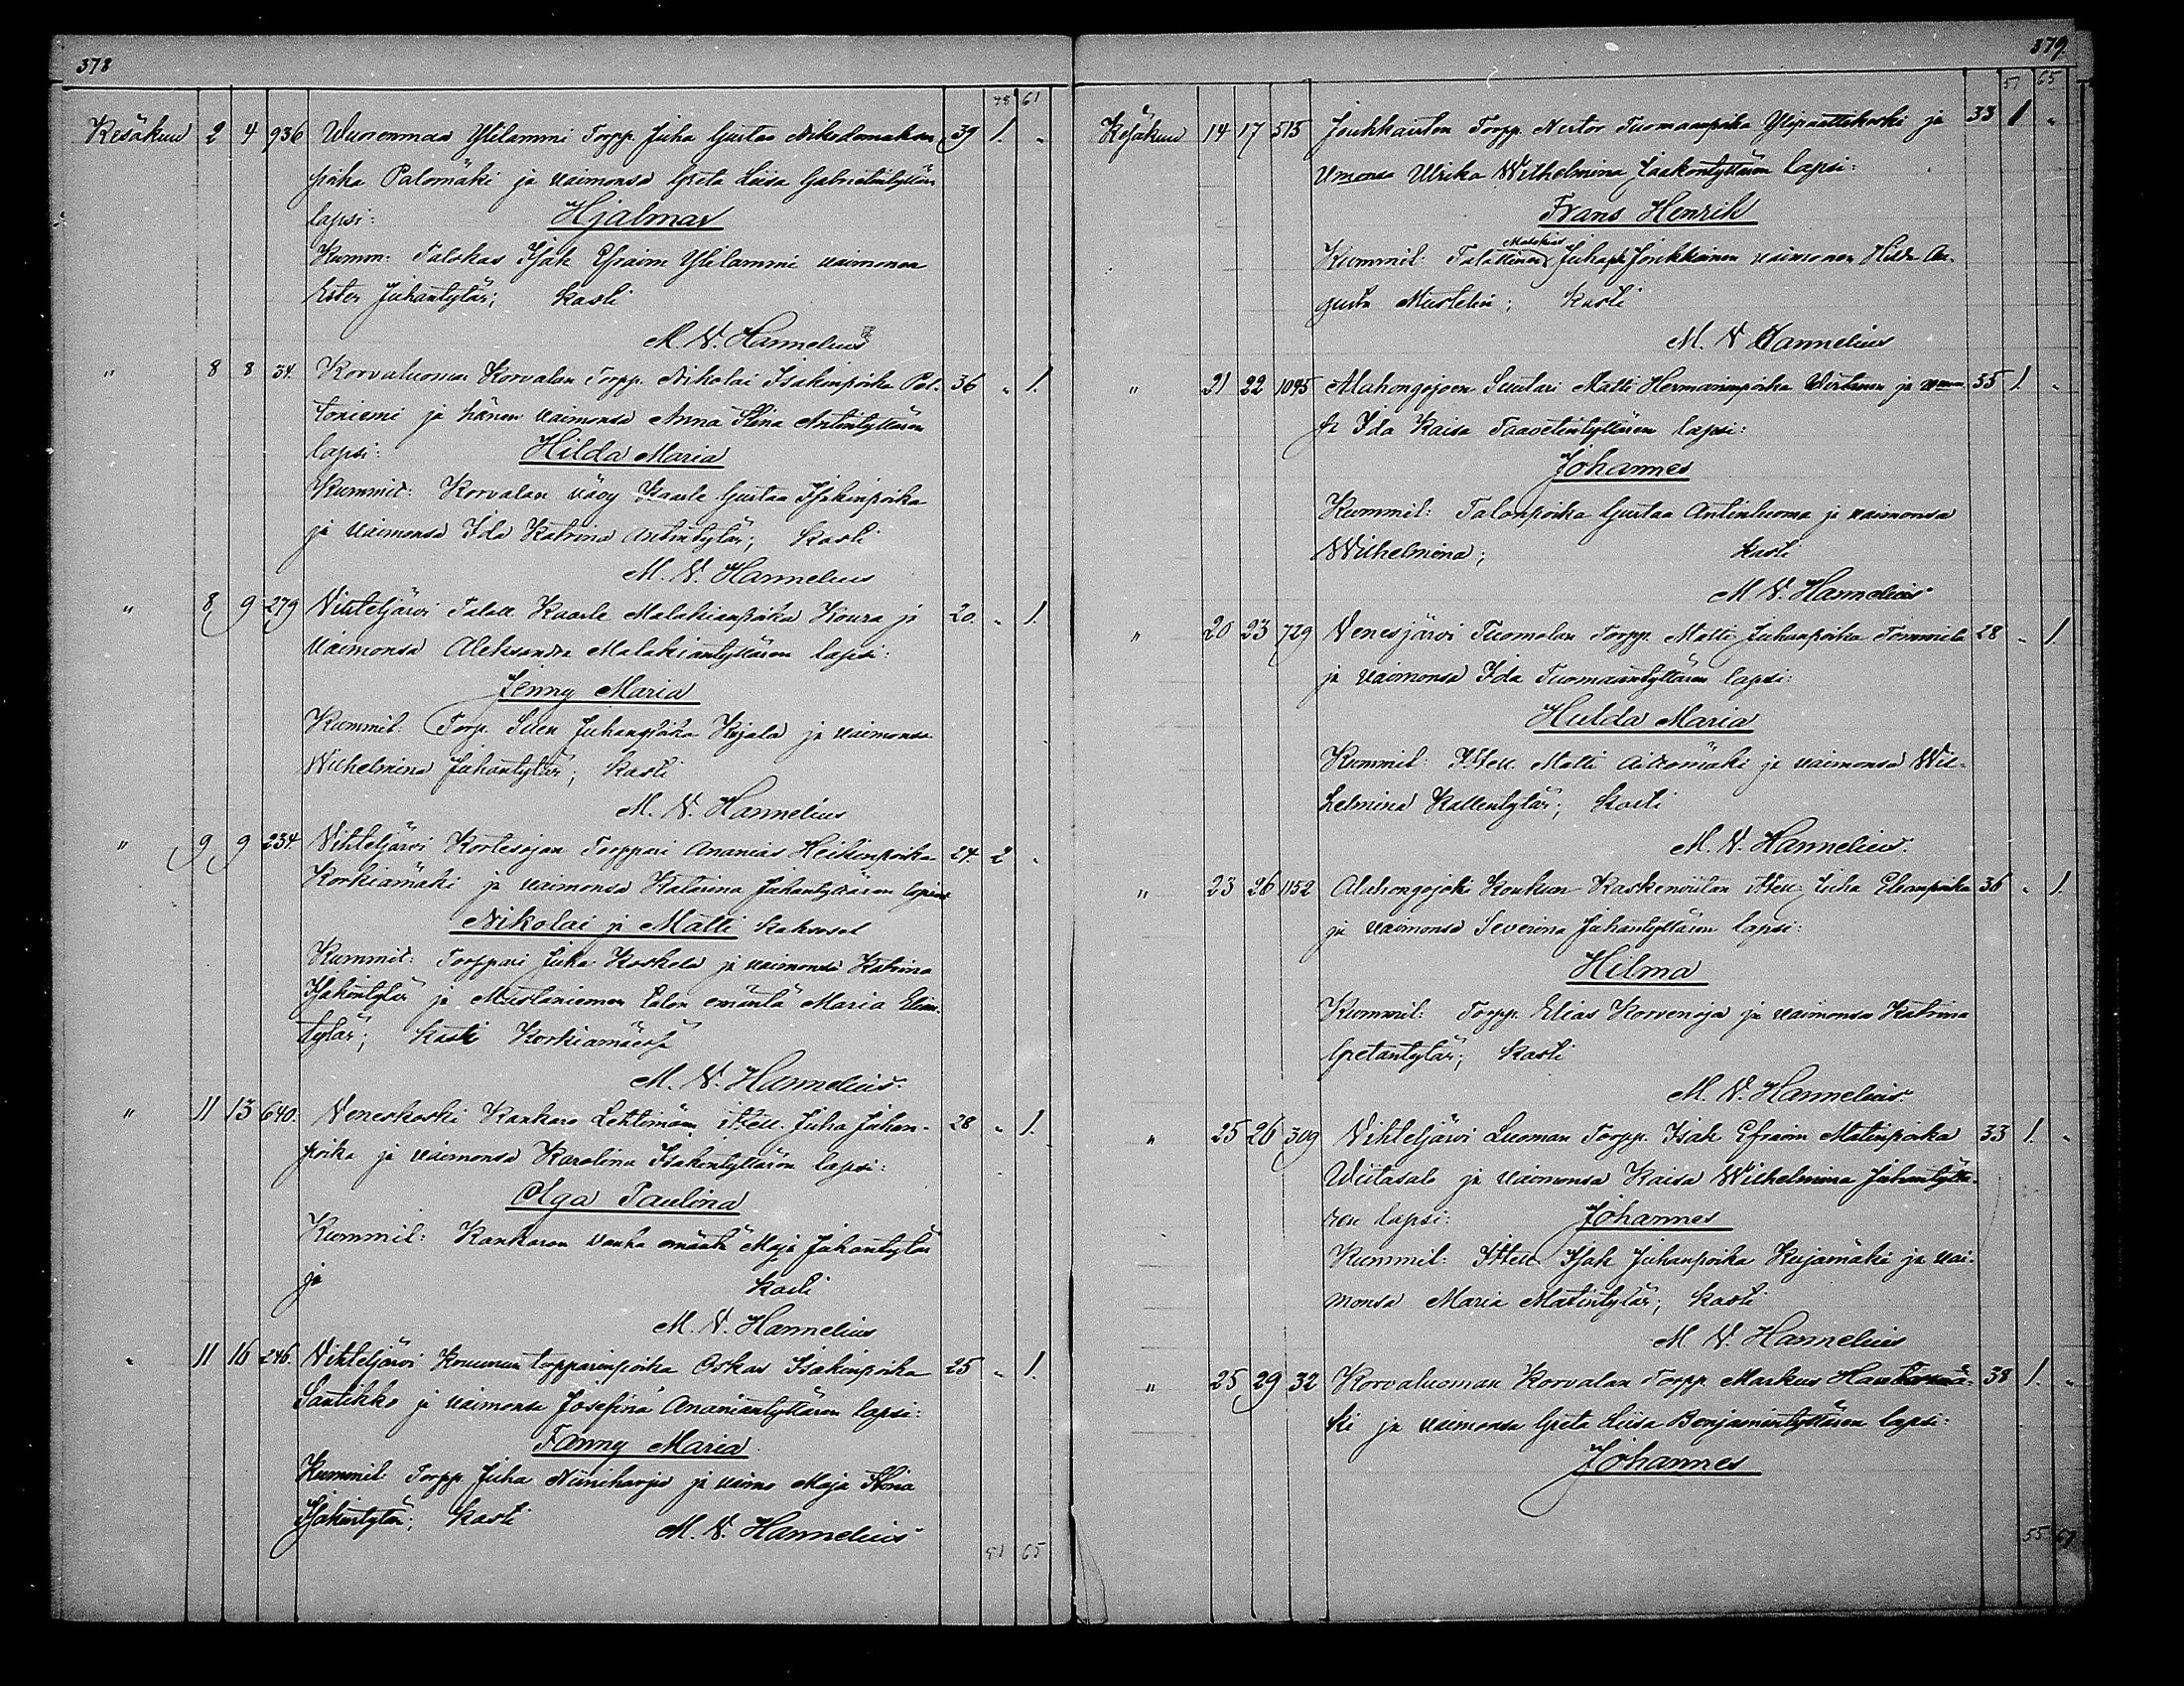 378
48 61
Kesäkuu 2 4 936 Wuorenmaa Ylilammi Torpp. Juha Gustaa Nikodemuksen 39 1. "
poika Palomäki ja vaimonsa Greta Liisa Gabrielintyttären
lapsi: Hjalmar
Kumm: Talokas Isak Efraim Ylilammi vaimonsa
Ester Juhantytär; kasti
M. V. Hannelius
" 8 8 34. Korvaluoma Korvalan Torpp. Nikolai Isakinpoika Pel- 36 " 1.
toniemi ja hänen vaimonsa Anna Stina Antintyttären
lapsi: Hilda Maria
Kummit: Korvalan vävy Kaarle Gustaa Isakinpoika
ja vaimonsa Ida Katrina Antintytär; kasti
M. V. Hannelius
" 8 9 279 Vihteljärvi Talall. Kaarle Malakianpoika Koura ja 20. " 1.
vaimonsa Aleksandra Malakiantyttären lapsi:
Jenny Maria
Kummit: Torp. Sven Juhanpoika Kujala ja vaimonsa
Wilhelmina Juhantytär; kasti
M. V. Hannelius
" 9 9 234. Vihteljärvi Kortesojan Torppari Ananias Heikinpoika 24. 2 "
Korkiamäki ja vaimonsa Katarina Juhantyttären lapset
Nikolai ja Matti kaksoset
Kummit: Torppari Juha Koskela ja vaimonsa Katrina
Isakintytär ja Mustaniemen talon emäntä Maria Elian-
tytär; kasti Korkiamäessä
M. V. Hannelius.
" 11 13 640. Veneskoski Kankaan Lehtimäen Itsell. Juha Juhan- 28 " 1.
poika ja vaimonsa Karolina Isakintyttären lapsi:
Olga Paulina
Kummit: Kankaan vanha emäntä Maja Juhantytär
ja kasti
M. V. Hannelius
" 11 16 246. Vihteljärvi Kouran torpparinpoika Oskar Isakinpoika 25 " 1.
Santikko ja vaimonsa Josefina Ananiantyttären lapsi:
Fanny Maria
Kummit: Torpp. Juha Niiniharju ja vaimo Maja Stina
Isakintytär; kasti M. V. Hannelius
51 65
379.
51 65
Kesäkuu 14 17 515 Joukkaulon Torpp. Nestor Tuomaanpoika Ylipaattikoski ja 33 1 "
Vmonsa Ulrika Wilhelmina Jaakontyttären lapsi:
Frans Henrik
Malakias
Kummit: Talollinen Juhap. Jonkkainen vaimonsa Hilda Au-
gusta Mustelin; kasti
M. V Hannelius
" 21 22 1045 Alahongojoen Suutari Matti Hermaninpoika Wirtanen ja vmon- 35 1. "
sa Ida Kaisa Taavetintyttären lapsi:
Johannes
Kummit: Talonpoika Gustaa Antinluoma ja vaimonsa
Wilhelmina; kasti
M V. Hannelius
" 20 23 729 Venesjärvi Tuomolan Torpp. Matti Juhanpoika Tommila 28 " 1.
ja vaimonsa Ida Tuomaantyttären lapsi:
Hulda Maria
Kummit: Itsell. Matti Aittomäki ja vaimonsa Wil-
helmina Kallentytär; kasti
M. V. Hannelius.
" 23 26 1152 Alahongojoki Konkun Kaskenviitan Itsell. Juha Elianpoika 36 " 1.
ja vaimonsa Severina Juhantyttären lapsi:
Hilma
Kummit: Torpp. Elias Korvenoja ja vaimonsa Katrina
Gretantytär; kasti
M. V. Hannelius.
" 25 26 309 Vihteljärvi Luoman Torpp. Isak Efraim Matinpoika 33 1. "
Wiitasalo ja vaimonsa Kaisa Wilhelmina Juhantyttä-
ren lapsi: Johannes
Kummit: Itsell. Isak Juhanpoika Kujamäki ja vai-
monsa Maria Matintytär; kasti
M V. Hannelius
" 25 29 32 Korvaluoman Korvalan Torpp. Markus Hautamä- 38 1. "
ki ja vaimonsa Greta Liisa Benjamintyttären lapsi:
Johannes
55 69